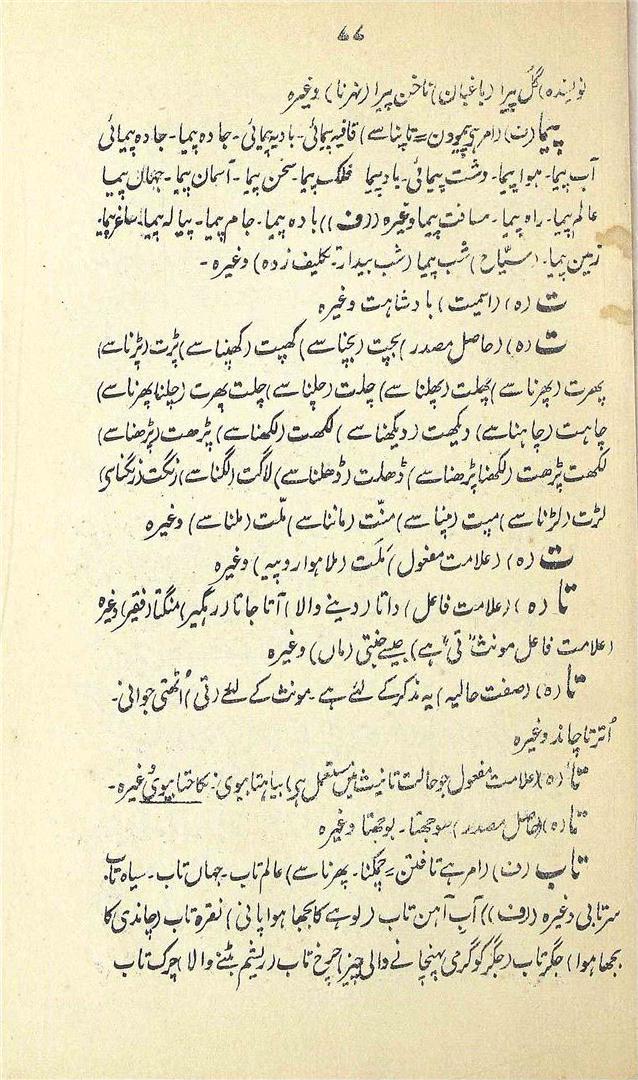 ۷۷
نویسندہ) گُل پیرا (باغبان) ناخن پیرا (نہرنا) وغیرہ
پیما (ف) (امر ہے پیمودن = ناپنا سے) قافیہ پیمائی۔ بادیہ پیمائی۔ جادہ پیما۔ جادہ پیمائی
آب پیما۔ ہوا پیما۔ دشت پیمائی۔ باد پیما فلک پیما سخن پیما۔ آسمان پیما۔ جہاں پیما
عالم پیما۔ راہ پیما۔ مسافت پیما وغیرہ ((ف)) بادہ پیما۔ جام پیما۔ پیالہ پیما۔ ساغر پیما۔
زمین پیما۔ (سیّاح) شب پیما (شب بیدار۔ تکلیف زدہ) وغیرہ ۔
ت (ہ) (اسمیت) بادشاہت وغیرہ
ت (ہ) (حاصل مصدر) بچت (بچنا سے) کھپت (کھپنا سے) پڑت (پڑنا سے)
پھرت (پھرنا سے) پھلت (پھلنا سے) چلت (چلنا سے) چلت پھرت (چلنا پھرنا سے)
چاہت (چاہنا سے) دیکھت (دیکھنا سے) لکھت (لکھنا سے) پڑھت (پڑھنا سے)
لکھت پڑھت (لکھنا پڑھنا سے) ڈھلت (ڈھلنا سے) لاگت (لگنا سے) رنگت (رنگنا سے)
لڑت (لڑنا سے) مپت (مپنا سے) منّت (ماننا سے) ملّت (ملنا سے) وغیرہ
ت (ہ) (علامت مفعول) مَلَت (ملا ہوا روپیہ) وغیرہ
تا (ہ) (علامت فاعل) داتا (دینے والا) آتا جاتا (رہگیر) منگتا (فقیر) وغیرہ
(علامت فاعل مونث "تی" ہے) جیسے جنتی (ماں) وغیرہ
تا (ہ) (صفت حالیہ) یہ مذکر کے لئے ہے۔ مونث کے لئے (تی) اُٹھتی جوانی۔
اُترتا چاند وغیرہ
تا (ہ) (علامت مفعول جو حالت تانیث میں مستعمل ہے) بیاہتا بیوی۔ نکاحتا بیوی وغیرہ۔
تا (ہ) (حاصل مصدر) سوجھتا۔ بوجھتا وغیرہ
تاب (ف) (امر ہے تافتن = چمکنا۔ پھرنا سے) عالم تاب۔ جہاں تاب۔ سیاہ تاب
سرتابی وغیرہ ((ف)) آبِ آہن تاب (لوہے کا بجھا ہوا پانی) نقرہ تاب (چاندی کا
بجھا ہوا) جگر تاب (جگر کو گرمی پہنچانے والی چیز) چرخ تاب (ریشم بٹنے والا) چرک تاب